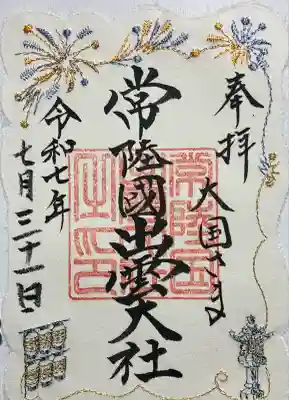 奉拝
大国さま
常陸國出雲大社
令和七年
七月三十一日